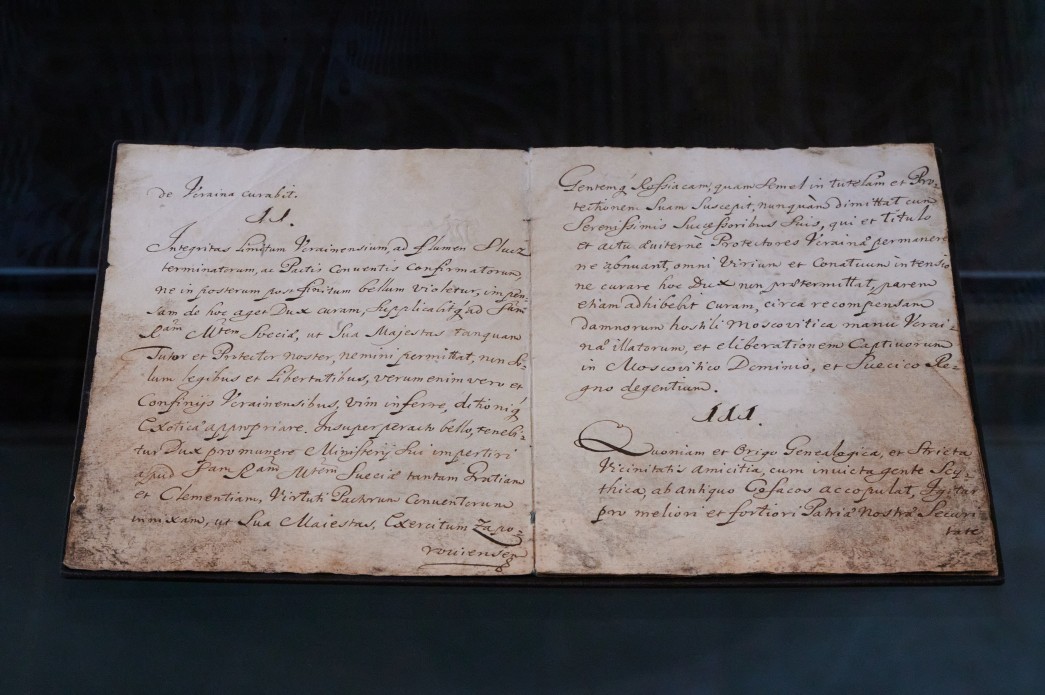 de Ucraina curabit.
II.
Integritas limitum Ucrainensium, ad flumen Slucz
terminatorum, ac Pactis Conventis Confirmatorum,
ne in posterum post finitum bellum violetur, impen-
sam de hoc aget Dux curam, supplicabitq́ ad Sam
Ram Mtem Sueciæ, ut Sua Majestas tanquam
Tutor et Protector noster, nemini permittat, non so-
lum legibus et Libertatibus, verum enim vero et
Confinijs Ucrainensibus, vim inferre, ditioniq́
Exoticæ appropriare. Insuper peracto bello, tenebi-
tur Dux pro munere Ministerij Sui impertiri
apud Sam Ram Mtem Sueciæ tantam Gratiam
et Clementiam, Virtuti Pactorum Conventorum
innixam, ut Sua Maiestas, Exercitum Zapo-
roviensem
Gentemq́ Rossiacam, quam Semel in tutelam et Pro-
tectionem Suam Suscepit, nunquam dimittat cum
Serenissimis Successoribus Suis, qui et titulo
et actu æviterne Protectores Ucrainæ permanere
ne abnuant, omni Virium et Conatuum intensio
ne curare hoc Dux non prætermittat, parem
etiam adhibebit curam, circa recompensam
damnorum hostili Moscovitica manu Ucrai-
næ illatorum, et eliberationem Captivorum
in Moscovitico Dominio, et Suecico Re-
gno degentium.
III.
Quoniam et Origo Genealogica, et Stricta
Vicinitatis amicitia, cum invicta gente Scy-
thica, ab antiquo Cosacos accopulat, Igitur
pro meliori et fortiori Patriæ Nostræ Securi
tate